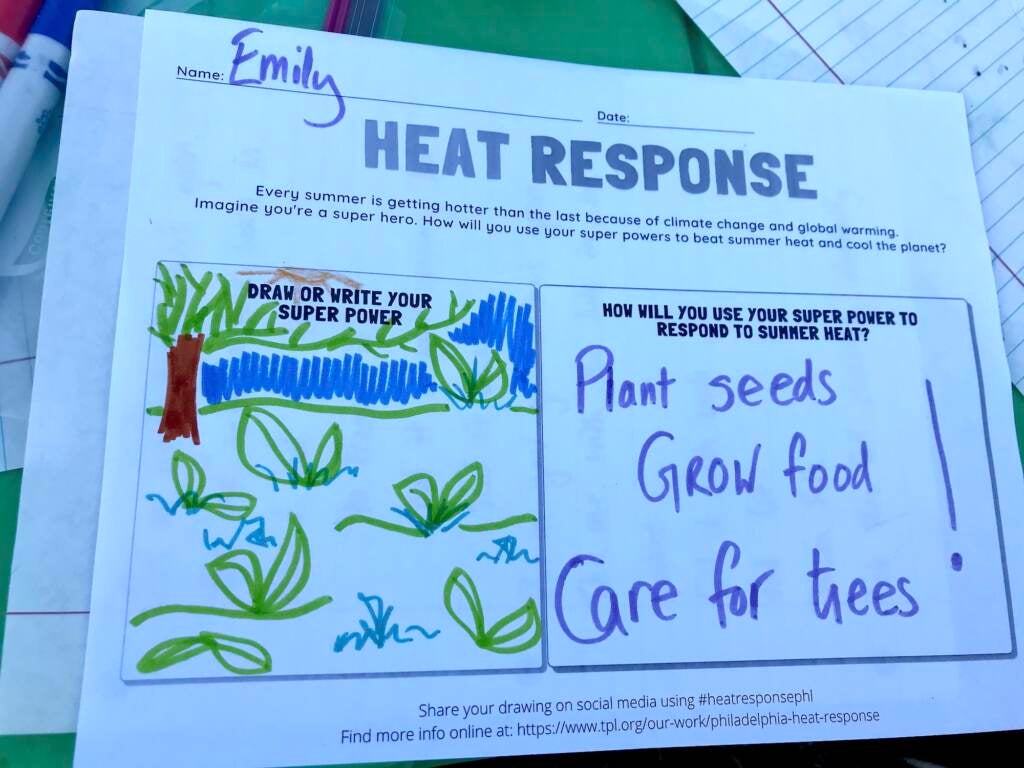 Name: Emily
Date:
HEAT RESPONSE
Every summer is getting hotter than the last because of climate change and global warming.
Imagine you're a super hero. How will you use your super powers to beat summer heat and cool the planet?
DRAW OR WRITE YOUR
SUPER POWER
HOW WILL YOU USE YOUR SUPER POWER TO
RESPOND TO SUMMER HEAT?
Plant seeds
GROW food
Care for trees !
Share your drawing on social media using #heatresponsephl
Find more info online at: https://www.tpl.org/our-work/philadelphia-heat-response